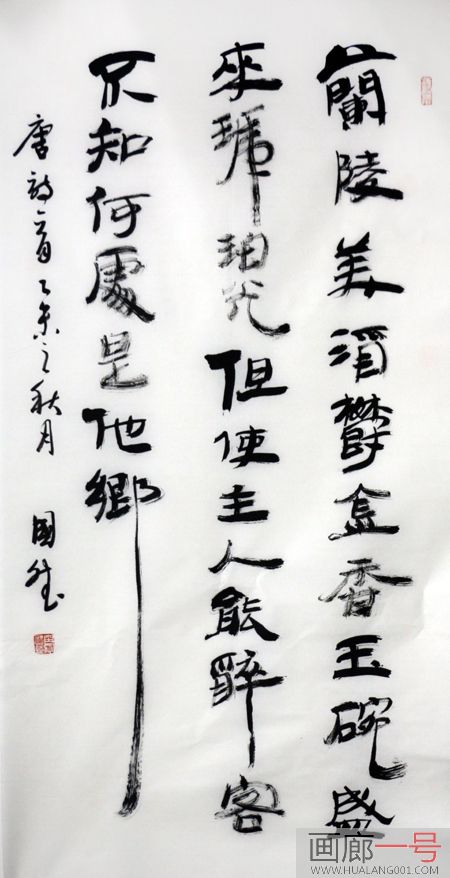 蘭陵美酒鬱金香玉碗盛
來琥珀光但使主人能醉客
不知何處是他鄉
唐詩一首乙未之秋月 國
画廊一号
WWW.HUALANG001.COM